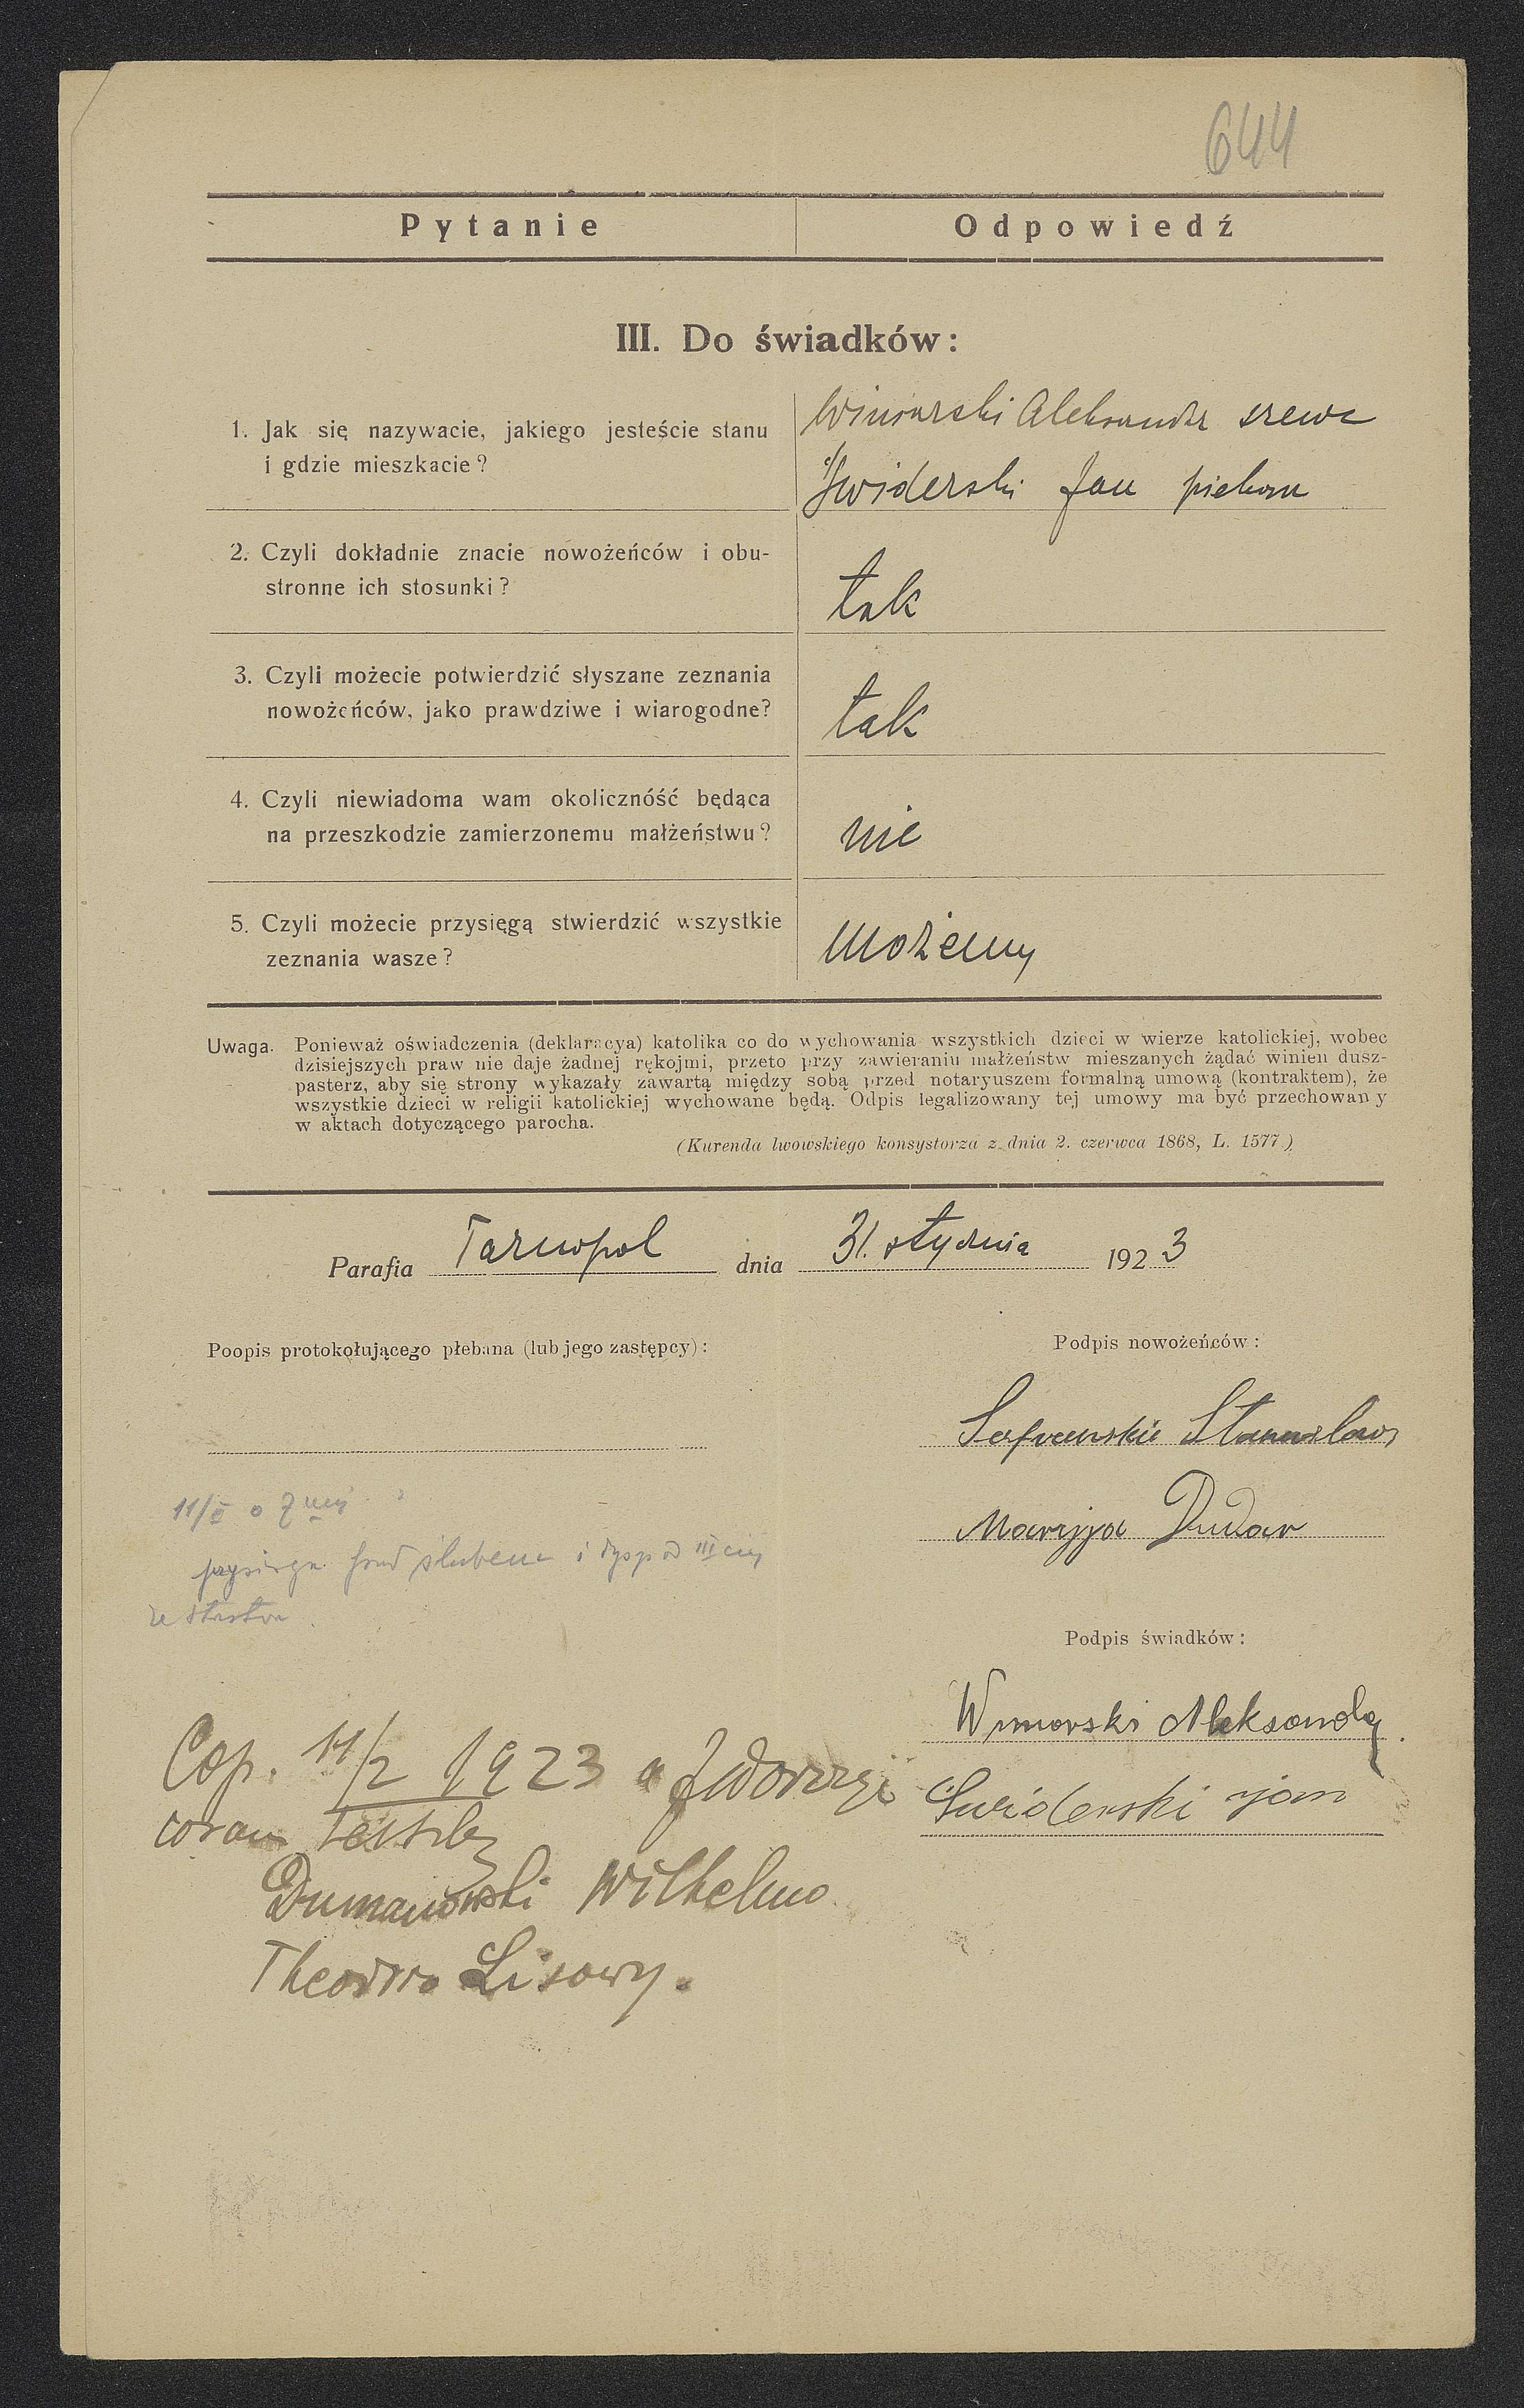 644
Pytanie Odpowiedź
III. Do świadków:
1. Jak się nazywacie, jakiego jesteście stanu
i gdzie mieszkacie?
Winiarski Aleksander szewc
Świderski Jan piekarz
2. Czyli dokładnie znacie nowożeńców i obu-
stronne ich stosunki?
tak
3. Czyli możecie potwierdzić słyszane zeznania
nowożeńców, jako prawdziwe i wiarogodne?
tak
4. Czyli niewiadoma wam okolicznóść będąca
na przeszkodzie zamierzonemu małżeństwu?
nie
5. Czyli możecie przysięgą stwierdzić wszystkie
zeznania wasze?
możemy
Uwaga. Ponieważ oświadczenia (deklaracya) katolika co do wychowania wszystkich dzieci w wierze katolickiej, wobec
dzisiejszych praw nie daje żadnej rękojmi, przeto przy zawieraniu małżeństw mieszanych żądać winien dusz-
pasterz, aby się strony wykazały zawartą między sobą przed notaryuszem formalną umową (kontraktem), że
wszystkie dzieci w religii katolickiej wychowane będą. Odpis legalizowany tej umowy ma być przechowany
w aktach dotyczącego parocha.
(Kurenda lwowskiego konsystorza z dnia 2. czerwca 1868, L. 1577.)
Parafia Tarnopol dnia 31. stycznia 1923
Poopis protokołującego plebana (lub jego zastępcy):
Podpis nowożeńców:
Stanisław
Maryja Dudar
11/II o 7
przysięga przed ślubem i dysp od III ciej
ze Starostwa
Podpis świadków:
Winiarski Aleksander
Świderski Jan
Cop. 11/2 1923 a
coram testib
Dumanowski Wilhelmo
Theodoro Lisowy.